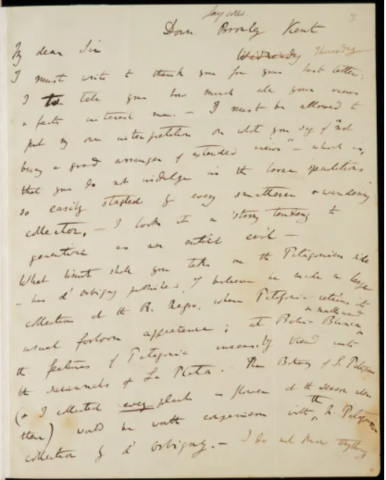 Down Bromley Kent
Thursday
My dear Sir
I must write to thank you for your last letter;
I to tell you how much all your views
& facts interest me. — I must be allowed to
put my own interpretation on what you say of "not
being a good arranger of extended views" — which is,
that you do not indulge in the loose speculations
so easily started by every smatterer & wandering
collector. — I look at a strong tendency to
generalize as an entire evil —
What limit shall you take on the Patagonian side
— has d'Orbigny published, I believe he made a large
collection at the R. Negro, where Patagonia retains its
usual forlorn appearance; at Bahia Blanca
& northward
the features of Patagonia insensibly blend into
the savannahs of La Plata. The Botany of S. Patagonia
(& I collected every plant in flower at the season when
there) would be worth comparison with the N. Patagonian
collection by d'Orbigny. — I do not know anything